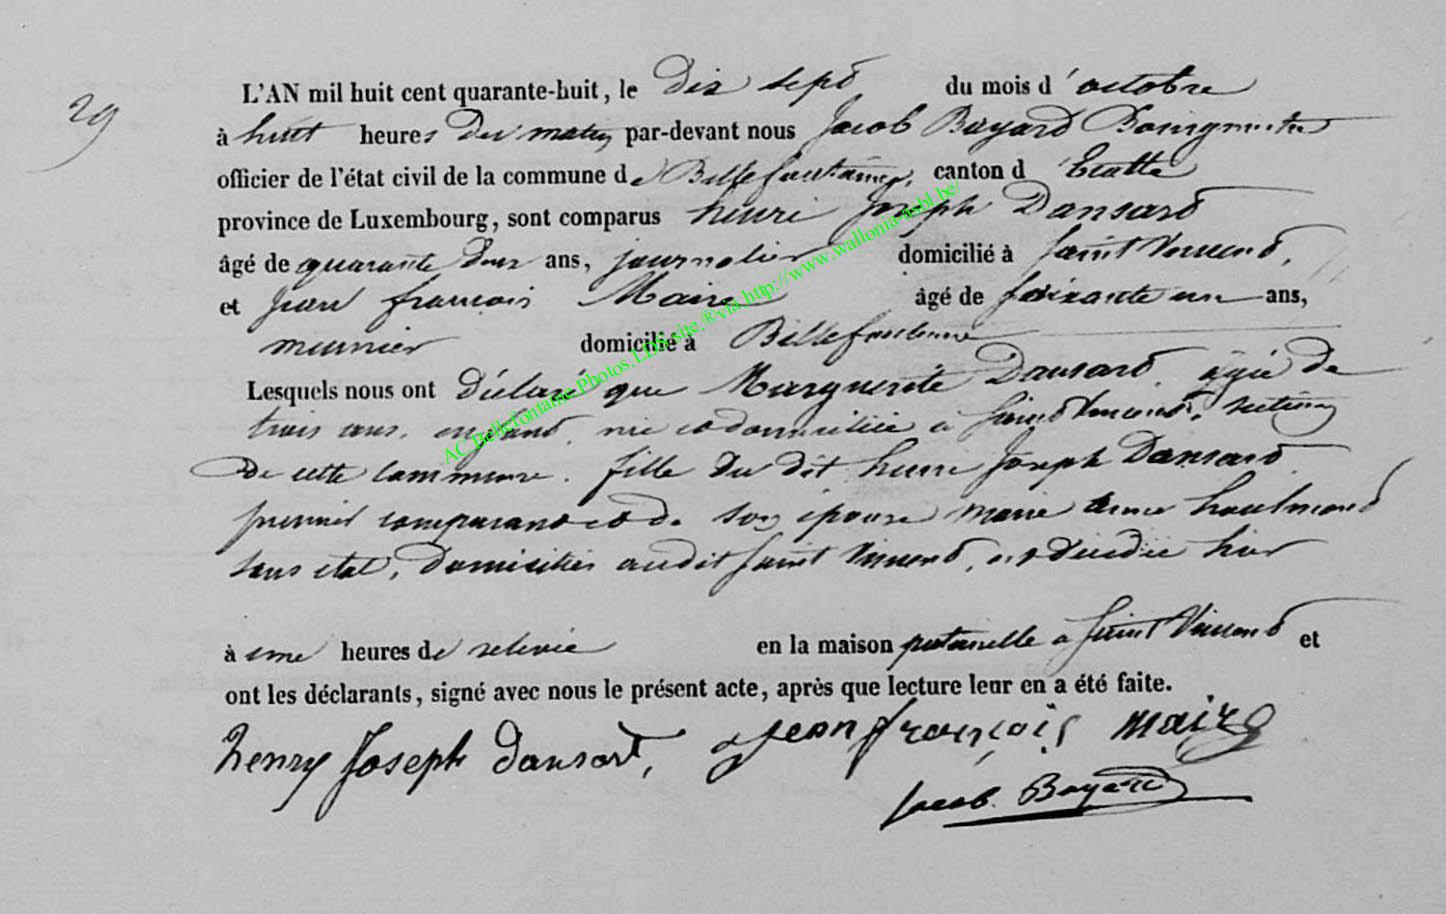 29
L'AN mil huit cent quarante-huit, le dix sept du mois d'octobre
à huit heures du matin par-devant nous Jacob Bayard Bourgmestre
officier de l'état civil de la commune de Bellefontaine, canton d'Etalle
province de Luxembourg, sont comparus henri Joseph Dansard
âgé de quarante deux ans, journalier domicilié à Saint Vincent,
et Jean françois Maire âgé de soixante un ans,
meunier domicilié à Bellefontaine
Lesquels nous ont déclaré que Marguerite Dansard, agée de
trois ans, enfant, née et domiciliée a Saint Vincent, section
de cette commune. fille du dit henri Joseph Dansard
premier comparant et de son épouse marie anne haulmond
sans etat, domiciliés audit Saint Vincent, est décédée hier
à une heures de relevée en la maison paternelle a Saint Vincent et
ont les déclarants, signé avec nous le présent acte, après que lecture leur en a été faite.
henry Joseph dansart, Jean françois maire
Jacob Bayard
AC Bellefontaine.Photos.LDS site.®via http://www.wallonia-asbl.be/